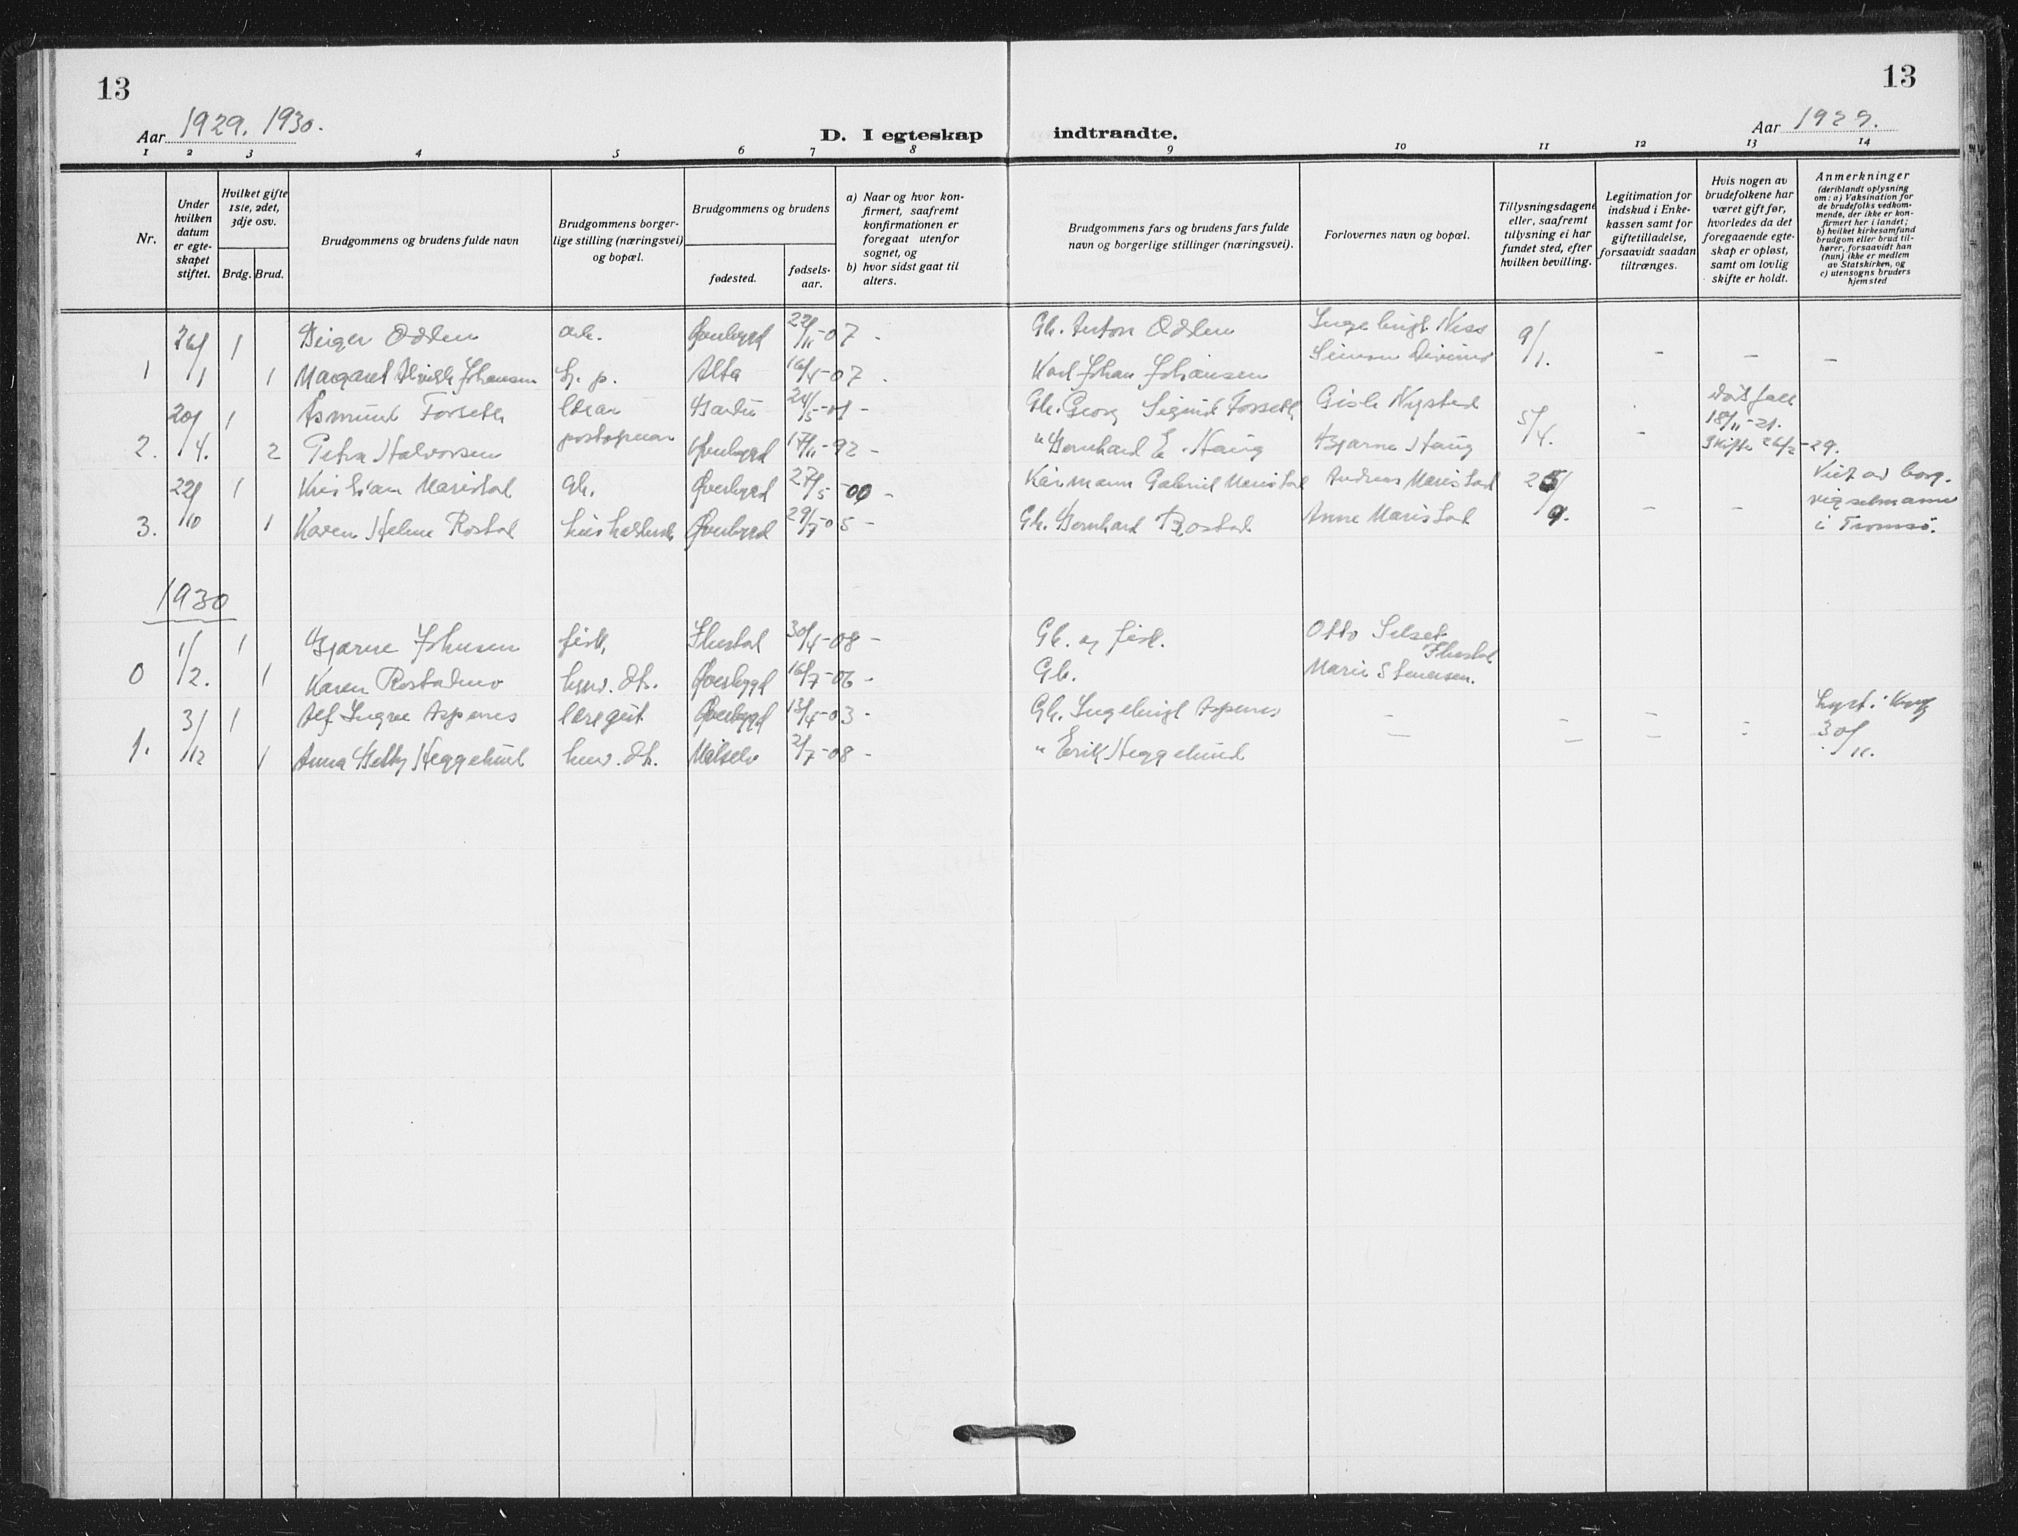 13
Aar 1929. 1930.
D. I egteskap indtraadte.
Aar 1929.
13
1 2 3 4 5 6 7 8 9 10 11 12 13 14
Nr.
Under
hvilken
datum
er egte-
skapet
stiftet.
Hvilket gifte
1ste, 2det,
3dje osv.
Brdg. Brud.
Brudgommens og brudens fulde navn
Brudgommens borger-
lige stilling (næringsvei)
og bopæl.
Brudgommens og brudens
fødested.
fødsels-
aar.
a) Naar og hvor kon-
firmert, saafremt
konfirmationen er
foregaat utenfor
sognet, og
b) hvor sidst gaat til
alters.
Brudgommens fars og brudens fars fulde
navn og borgerlige stillinger (næringsvei).
Forlovernes navn og bopæl.
Tillysningsdagene
eller, saafremt
tillysning ei har
fundet sted, efter
hvilken bevilling.
Legitimation for
indskud i Enke-
kassen samt for
giftetilladelse,
forsaavidt saadan
tiltrænges.
Hvis nogen av
brudefolkene har
været gift før,
hvorledes da det
foregaaende egte-
skap er opløst,
samt om lovlig
skifte er holdt.
Anmerkninger
(deriblandt oplysning
om: a) Vaksination for
de brudefolks vedkom-
mende, der ikke er kon-
firmert her i landet;
b) hvilket kirkesamfund
brudgom eller brud til-
hører, forsaavidt han
(hun) ikke er medlem
av Statskirken, og
c) utensogns bruders
hjemsted
26/1 1 Birger Odden arb. Øverbygd 22/11-07 - Gb. Anton Odden 9/1. - - -
1 1 Margaret Johansen h. p. Alta 16/4-07. Karl Johan Johansen Simon
20/4. 1 Åsmund Forseth Bardu 24/5-01 - Gb. Georg Sigurd Forseth Gisle Nysted 5/4. - Dødsfall
18/11-21.
2. 2 Petra Halvorsen Øverbygd 17/11-92 - " Bernhard E. Haug Bjarne Haug Skifte 26/2-29.
22/10 1 Kristian Maristad Gb. Øverbygd 27/5-00 - Gabriel Maristad Andreas Maristad 25/9. - - Viet av borg.
vigselmann
i Tromsø.
3. 1 Karen Helene Rostad Øverbygd 29/7-05 - Gb. Bernhard Rostad Anne Maristad
1930
1/2. 1 Bjarne Johnsen fisk. 30/4-08 - Gb. og fisk. Otto Selset
0 1 Karen Rostadmo hmv. dt. Øverbygd 16/7-06 - Gb. Marie Simensen.
3/12 1 Alf Ingve Aspenes Øverbygd 13/4-03 - Gb. Ingebrigt Aspenes - - - - Lyst i
30/11.
1. 1 Anna Betty Heggelund hmv. dt. Målselv 2/7-08 - " Erik Heggelund - - -